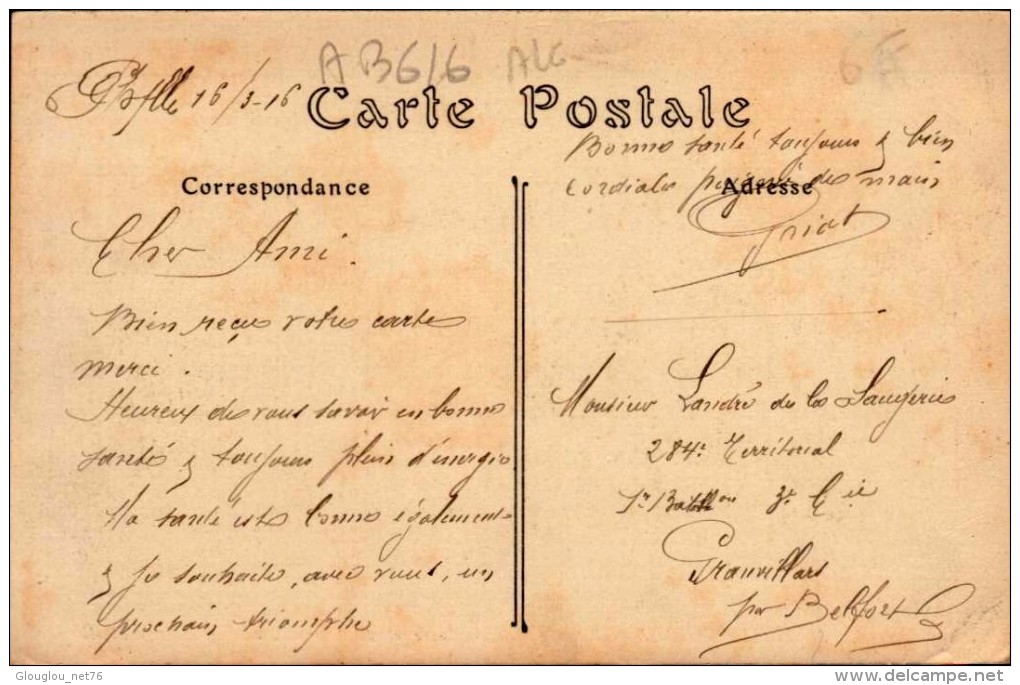 AB616 ALG
6 €
16/3-16
Carte Postale
Correspondance
Cher Ami.
Bien reçu votre carte
merci.
Heureux de vous savoir en bonne
santé & toujours plein d'énergie
Ma santé est bonne également
& je souhaite, avec vous, un
prochain triomphe
Bonne santé toujours & bien
cordiales poignées de main
Adresse
Priat
Monsieur Landré de la Saugerie
284e Territorial
1er Batllon 3e Cie
Granvillars
par Belfort
Glouglou_net76
delcampe.net